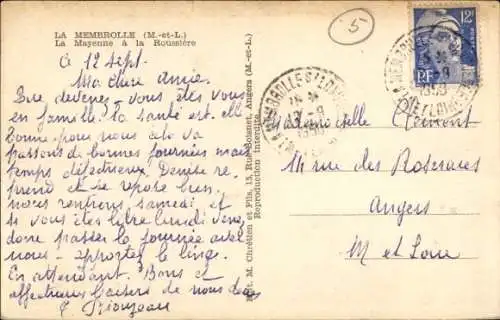 LA MEMBROLLE (M.-et-L.)
La Mayenne à la Roussière
5
12F
RF
Ce 12 Sept.
Ma chère amie.
Que devenez-vous êtes vous
en famille. la santé est elle
bonne pour nous cela va
passons de bonnes journées mais
temps défectueux. Denise re-
prend et se repose bien.
nous rentrons samedi et
si vous êtes libre lundi venez
donc passer la journée avec
nous - apportez le linge.
En attendant. Bons et
affectueux baisers de nous deux
Édit. M. Chrétien et Fils, 15, Rue Boisnet, Angers (M.-et-L.)
Reproduction Interdite
Mademoiselle Clément
14 rue des Roseraies
Angers
M et Loire